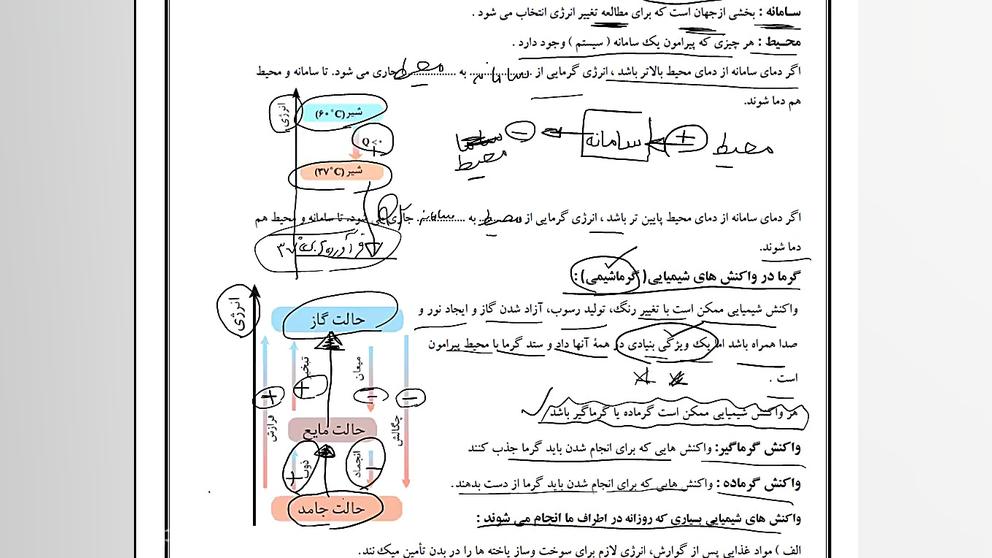 سـامانه : بخشی ازجهان است که برای مطالعه تغییر انرژی انتخاب می شود .
محـیط : هر چیزی که پیرامون یک سامانه ( سیستم ) وجود دارد .
اگر دمای سامانه از دمای محیط بالاتر باشد ، انرژی گرمایی از سامانه به محیط جاری می شود. تا سامانه و محیط
هم دما شوند.
انرژی
شیر (۶۰°C)
شیر (۳۷°C)
محیط + سامانه −
محیط
اگر دمای سامانه از دمای محیط پایین تر باشد ، انرژی گرمایی از محیط به سامانه جاری می شود. تا سامانه و محیط هم
دما شوند.
گرما در واکنش های شیمیایی( گرماشیمی) :
واکنش شیمیایی ممکن است با تغییر رنگ، تولید رسوب، آزاد شدن گاز و ایجاد نور و
صدا همراه باشد اما یک ویژگی بنیادی در همهٔ آنها داد و ستد گرما با محیط پیرامون
است .
هر واکنش شیمیایی ممکن است گرماده یا گرماگیر باشد
واکنش گرماگیر: واکنش هایی که برای انجام شدن باید گرما جذب کنند
واکنش گرماده : واکنش هایی که برای انجام شدن باید گرما از دست بدهند .
واکنش های شیمیایی بسیاری که روزانه در اطراف ما انجام می شوند :
الف ) مواد غذایی پس از گوارش، انرژی لازم برای سوخت وساز یاخته ها را در بدن تأمین میک نند.
انرژی
حالت گاز
تبخیر + میعان −
فرازش + چگالش −
حالت مایع
ذوب + انجماد −
حالت جامد